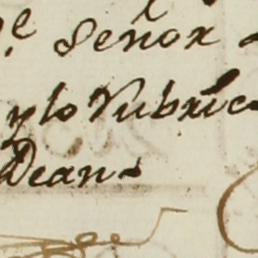 Señor
y lo Rubric
Dean